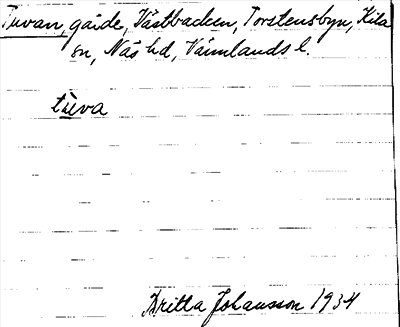 Tuvan, gärde, Västbacken, Torstensbyn, Kila
sn, Näs hd, Värmlands l.
tùeva
Britta Johansson 1934